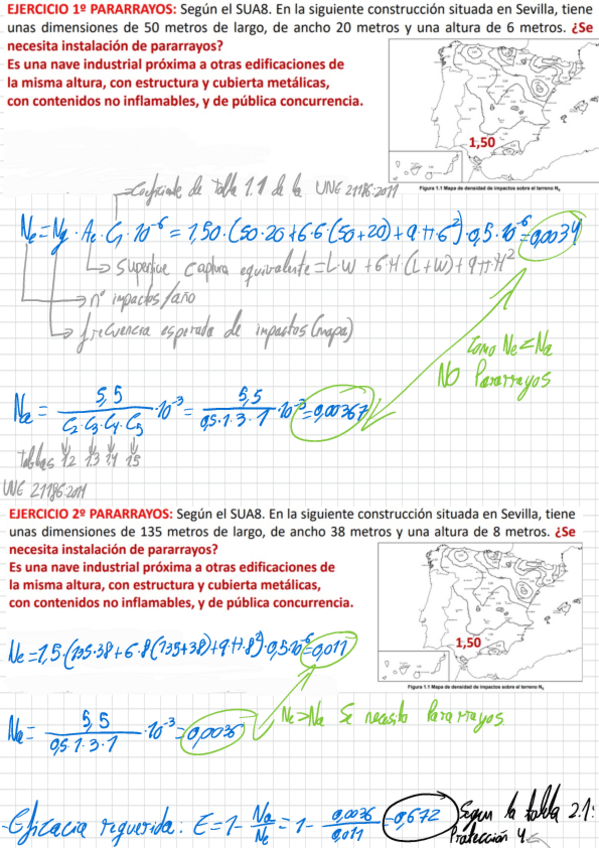 EJERCICIO 1º PARARRAYOS: Según el SUA8. En la siguiente construcción situada en Sevilla, tiene
unas dimensiones de 50 metros de largo, de ancho 20 metros y una altura de 6 metros. ¿Se
necesita instalación de pararrayos?
Es una nave industrial próxima a otras edificaciones de
la misma altura, con estructura y cubierta metálicas,
con contenidos no inflamables, y de pública concurrencia.
1,50
Figura 1.1 Mapa de densidad de impactos sobre el terreno Ng
Coeficiente de tabla 1.1 de la UNE 21186·2011
Ne = Ng · Ae · C1 · 10^-6 = 1,50 · (50·20 + 6·6(50+20) + 9·π·6^2) · 0,5·10^-6 = 0,0034
Superficie captura equivalente = L·W + 6·H·(L+W) + 9πH^2
nº impactos/año
frecuencia esperada de impactos (mapa)
Como Ne < Na
No Pararrayos
Na = 5,5 / (C2·C3·C4·C5) · 10^-3 = 5,5 / (0,5·1·3·1) · 10^-3 = 0,00367
tablas 1.2 1.3 1.4 1.5
UNE 21186·2011
EJERCICIO 2º PARARRAYOS: Según el SUA8. En la siguiente construcción situada en Sevilla, tiene
unas dimensiones de 135 metros de largo, de ancho 38 metros y una altura de 8 metros. ¿Se
necesita instalación de pararrayos?
Es una nave industrial próxima a otras edificaciones de
la misma altura, con estructura y cubierta metálicas,
con contenidos no inflamables, y de pública concurrencia.
1,50
Figura 1.1 Mapa de densidad de impactos sobre el terreno Ng
Ne = 1,5·(135·38 + 6·8(135+38) + 9·π·8^2)·0,5·10^-6 = 0,011
Na = 5,5 / (0,5·1·3·1) · 10^-3 = 0,0036
Ne > Na Se necesita Pararrayos
Eficacia requerida: E = 1 - Na/Ne = 1 - 0,0036/0,011 = 0,672
Segun la tabla 2.1:
Protección 4